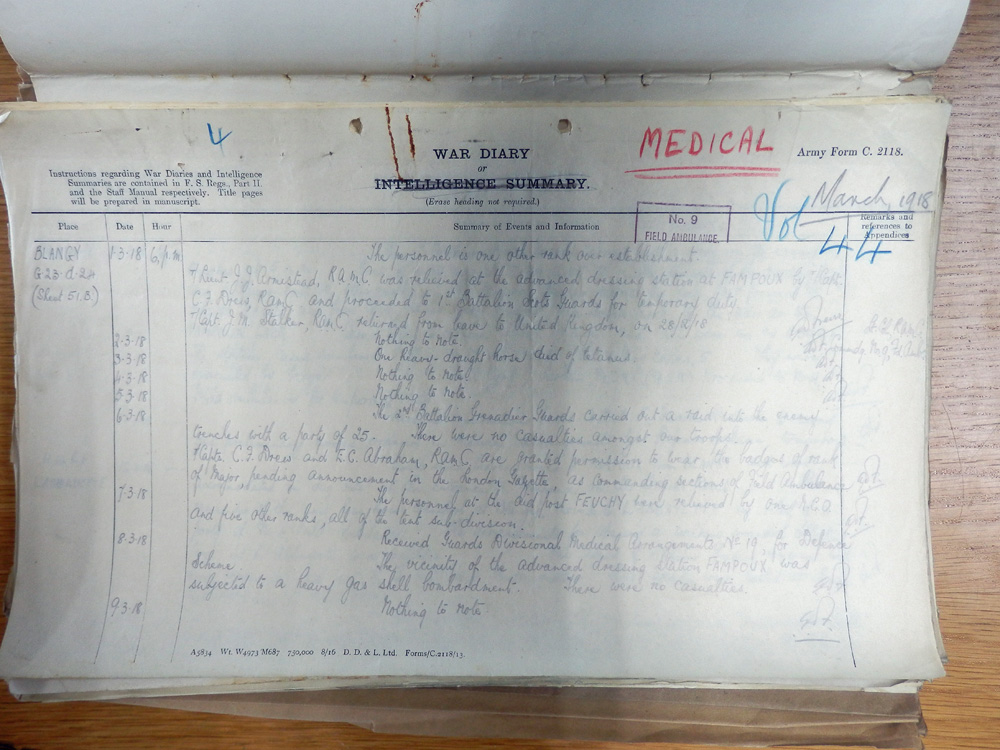 4
MEDICAL
Army Form C. 2118.
WAR DIARY
or
INTELLIGENCE SUMMARY.
(Erase heading not required.)
Instructions regarding War Diaries and Intelligence
Summaries are contained in F. S. Regs., Part II.
and the Staff Manual respectively. Title pages
will be prepared in manuscript.
March, 1918
Vol 44
No. 9
FIELD AMBULANCE.
Place Date Hour Summary of Events and Information Remarks and
references to
Appendices
BLANGY 1.3.18 6 p.m The personnel is one other rank over establishment.
G.23.d.2.4 Lieut J.J. Armistead, R.A.M.C. was relieved at the advanced dressing station at FAMPOUX by
(Sheet 51.B) C.F. Dross, RAMC and proceeded to 1st Battalion Scots Guards for temporary duty.
Capt. J.M. Stalker, RAMC, returned from leave to United Kingdom, on 28/2/18
2.3.18 Nothing to note.
3.3.18 One heavy-draught horse died of tetanus.
4.3.18 Nothing to note.
5.3.18 Nothing to note.
6.3.18 The 2nd Battalion Grenadier Guards carried out a raid into the enemy
trenches with a party of 25. There were no casualties amongst our troops.
Capts. C.F. Dross and E.C. Abraham, RAMC, are granted permission to wear the badges of rank
of Major, pending announcement in the London Gazette, as commanding sections of Field Ambulance
7.3.18 The personnel at the aid post FEUCHY were relieved by one N.C.O
and five other ranks, all of the tent sub-division.
8.3.18 Received Guards Divisional Medical Arrangements No 19, for Defence
Scheme. The vicinity of the advanced dressing station FAMPOUX was
subjected to a heavy gas shell bombardment. There were no casualties.
9.3.18 Nothing to note.
A5834 Wt. W4973 M687 750,000 8/16 D. D. & L. Ltd. Forms/C.2118/13.